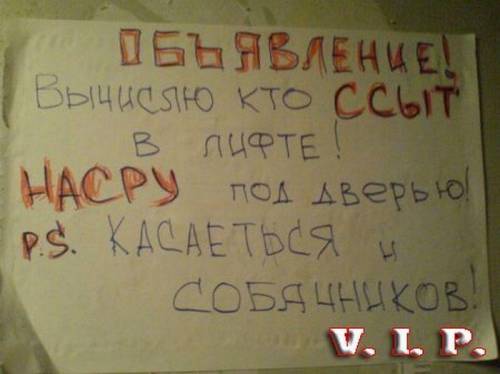 ОБЪЯВЛЕНИЕ!
ВЫЧИСЛЮ КТО ССЫТ
В ЛИФТЕ!
НАСРУ ПОД ДВЕРЬЮ!
P.S. КАСАЕТЬСЯ И
СОБАЧНИКОВ!
V. I. P.